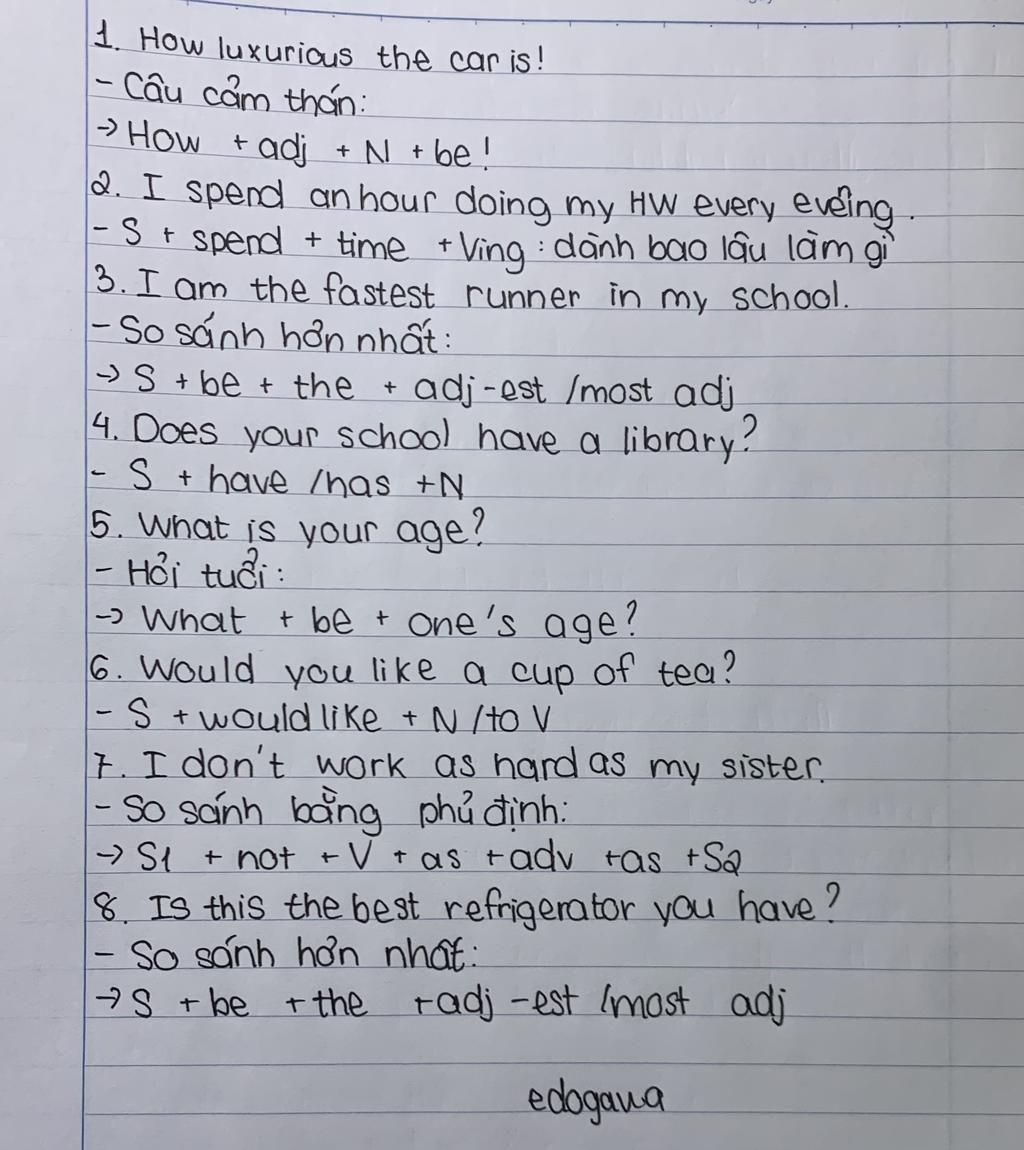 1. How luxurious the car is!
- Câu cảm thán:
→ How + adj + N + be!
2. I spend an hour doing my HW every evêing.
- S + spend + time + Ving : dành bao lâu làm gì
3. I am the fastest runner in my school.
- So sánh hơn nhất:
→ S + be + the + adj-est /most adj
4. Does your school have a library?
- S + have /has +N
5. What is your age?
- Hỏi tuổi:
→ What + be + one's age?
6. Would you like a cup of tea?
- S + would like + N /to V
7. I don't work as hard as my sister.
- So sánh bằng phủ định:
→ S1 + not + V + as + adv +as +S2
8. Is this the best refrigerator you have?
- So sánh hơn nhất:
→ S + be + the + adj -est /most adj
edogawa